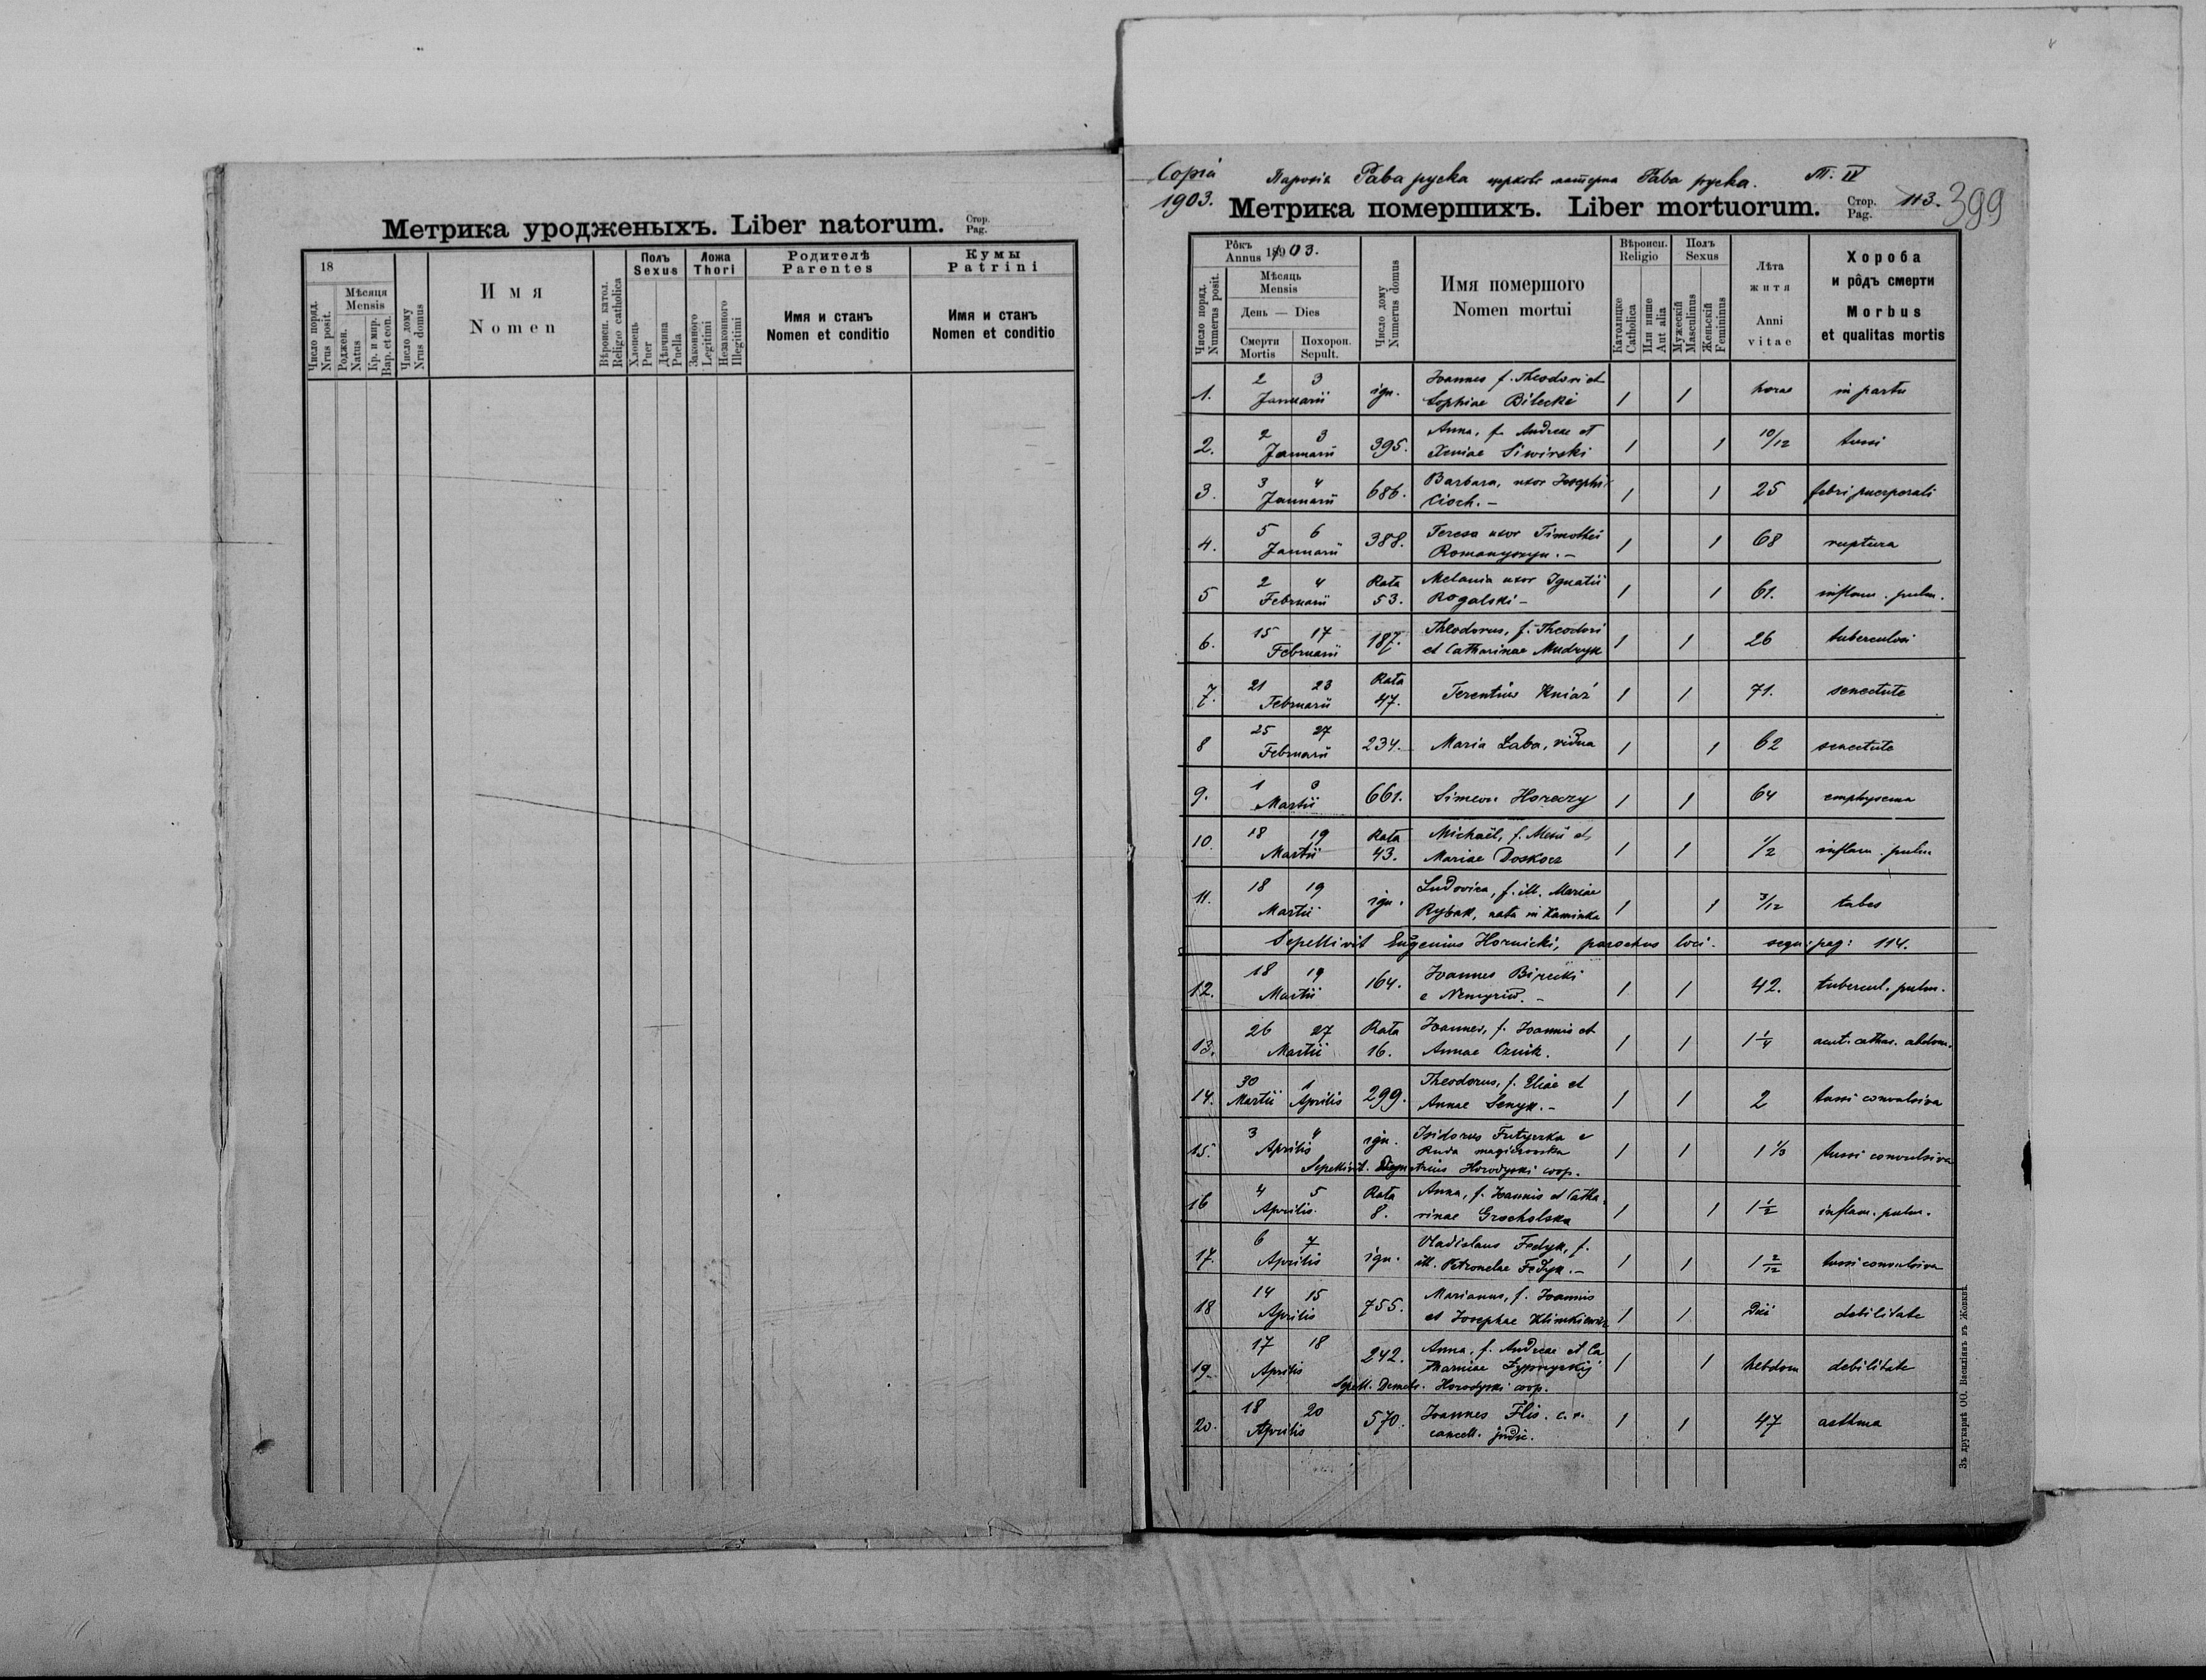 Метрика уродженыхъ. Liber natorum. Стор. Pag.
18
Число поряд. Nrus posit.
Мѣсяця Mensis
Роджен. Natus
Кр. и мир. Bap. et con.
Число дому Nrus domus
Имя
Nomen
Вѣроисп. катол. Religio catholica
Полъ Sexus
Хлопець Puer
Дѣвчина Puella
Ложа Thori
Законного Legitimi
Незаконного Illegitimi
Родителѣ Parentes
Имя и станъ
Nomen et conditio
Кумы Patrini
Имя и станъ
Nomen et conditio
Copia Парохія Рава руска церковь матерна Рава руска. Т. IV
1903. Метрика помершихъ. Liber mortuorum. Стор. Pag. 113. 399
Рôкъ Annus 1903.
Число поряд. Numerus posit.
Мѣсяць Mensis
День — Dies
Смерти Mortis
Похорон. Sepult.
Число дому Numerus domus
Имя помершого
Nomen mortui
Вѣроисп. Religio
Католицке Catholica
Или инше Aut alia
Полъ Sexus
Мужескій Masculinus
Женьскій Femininus
Лѣта житя
Anni vitae
Хороба
и рôдъ смерти
Morbus
et qualitas mortis
1. 2 3 Januarii ign. Joannes f. Theodori et Sophiae Bilecki 1 1 horae in partu
2. 2 3 Januarii 395. Anna, f. Andreae et Xeniae Siwirski 1 1 10/12 tussi
3. 3 4 Januarii 686. Barbara, uxor Josephi Cioch. - 1 1 25 febri puerperali
4. 5 6 Januarii 388. Teresa uxor Timothei Romanyszyn. - 1 1 68 ruptura
5 2 4 Februarii Rata 53. Melania uxor Ignatii Rogalski - 1 1 61. inflam. pulm.
6. 15 17 Februarii 187. Theodorus, f. Theodori et Catharinae Mudryk 1 1 26 tuberculosi
7. 21 23 Februarii Rata 47. Terentius Kniaź 1 1 71. senectute
8 25 27 Februarii 234. Maria Laba, vidua 1 1 62 senectute
9. 1 3 Martii 661. Simeon Horeczy 1 1 64 emphysema
10. 18 19 Martii Rata 43. Michaël, f. Alexii et Mariae Doskocz 1 1 1/2 inflam. pulm
11. 18 19 Martii ign. Ludovica, f. ill. Mariae Rybak, nata in Kaminka 1 1 3/12 tabes
Sepellivit Eugenius Hornicki, parochus loci. sequ: pag: 114.
12. 18 19 Martii 164. Joannes Birecki e Nemyriw. - 1 1 42. tubercul. pulm.
13. 26 27 Martii Rata 16. Joannes, f. Joannis et Annae Cznik. 1 1 1 1/4 acut. cathar. abdom.
14. 30 Martii 1 Aprilis 299. Theodorus, f. Eliae et Annae Senyk. - 1 1 2 tussi convulsiva
15. 3 4 Aprilis ign. Isidorus Futyerka e Ruda magierowska 1 1 1 1/3 tussi convulsiva
Sepellivit. Demetrius Horodyski coop.
16 4 5 Aprilis Rata 8. Anna, f. Joannis et Catharinae Grocholska 1 1 1 1/2 inflam. pulm.
17. 6 7 Aprilis ign. Vladislaus Fedyk, f. ill. Petronelae Fedyk. - 1 1 1 2/12 tussi convulsiva
18 14 15 Aprilis 755. Marianus, f. Joannis et Josephae Klimkiewicz 1 1 debilitate
19. 17 18 Aprilis 242. Anna, f. Andreae et Catharniae 1 1 hebdom debilitate
Sepell. Demetr. Horodyski coop.
20. 18 20 Aprilis 570. Joannes Flis. c. r. cancell. judic. 1 1 47 asthma
Зъ друкарнѣ ОО. Василіянъ въ Жовквѣ.